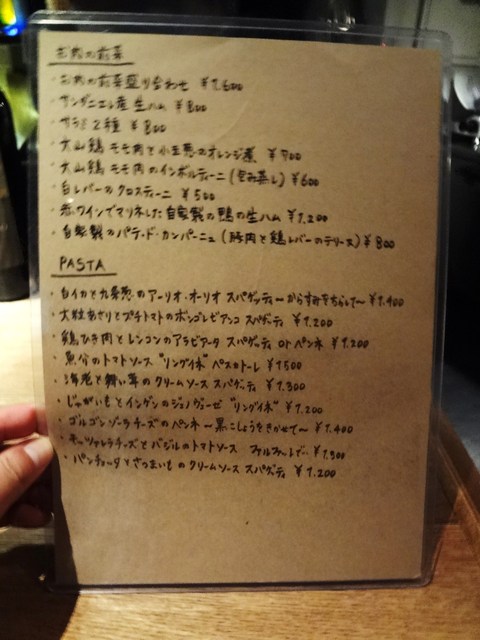 お肉の前菜
・お肉の前菜盛り合わせ ¥1,600
・サンダニエレ産生ハム ¥800
・サラミ2種 ¥800
・大山鶏モモ肉と小玉葱のオレンジ煮 ¥700
・大山鶏モモ肉のインボルティーニ(包み蒸し) ¥600
・白レバーのクロスティーニ ¥500
・赤ワインでマリネした自家製の鴨の生ハム ¥1,200
・自家製のパテ・ド・カンパーニュ(豚肉と鶏レバーのテリーヌ) ¥800
PASTA
・白イカと九条葱のアーリオ・オーリオ スパゲッティ〜からすみをちらして〜 ¥1,400
・大粒あさりとプチトマトのボンゴレビアンコ スパゲッティ ¥1,200
・鶏ひき肉とレンコンのアラビアータ スパゲッティ or ペンネ ¥1,200
・魚介のトマトソース "リングイネ" ペスカトーレ ¥1500
・海老と舞い茸のクリームソース スパゲッティ ¥1,300
・じゃがいもとインゲンのジェノヴェーゼ "リングイネ" ¥1,200
・ゴルゴンゾーラチーズのペンネ〜黒こしょうをきかせて〜 ¥1,400
・モッツァレラチーズとバジルのトマトソース ¥1,300
・パンチェッタとさつまいものクリームソース スパゲッティ ¥1,200